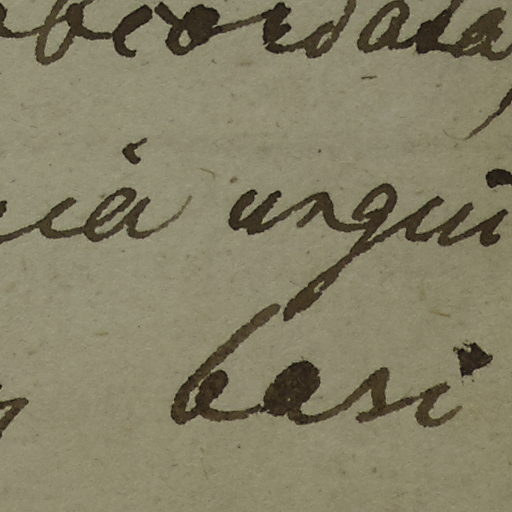 obcordata,
ia ungui
basi